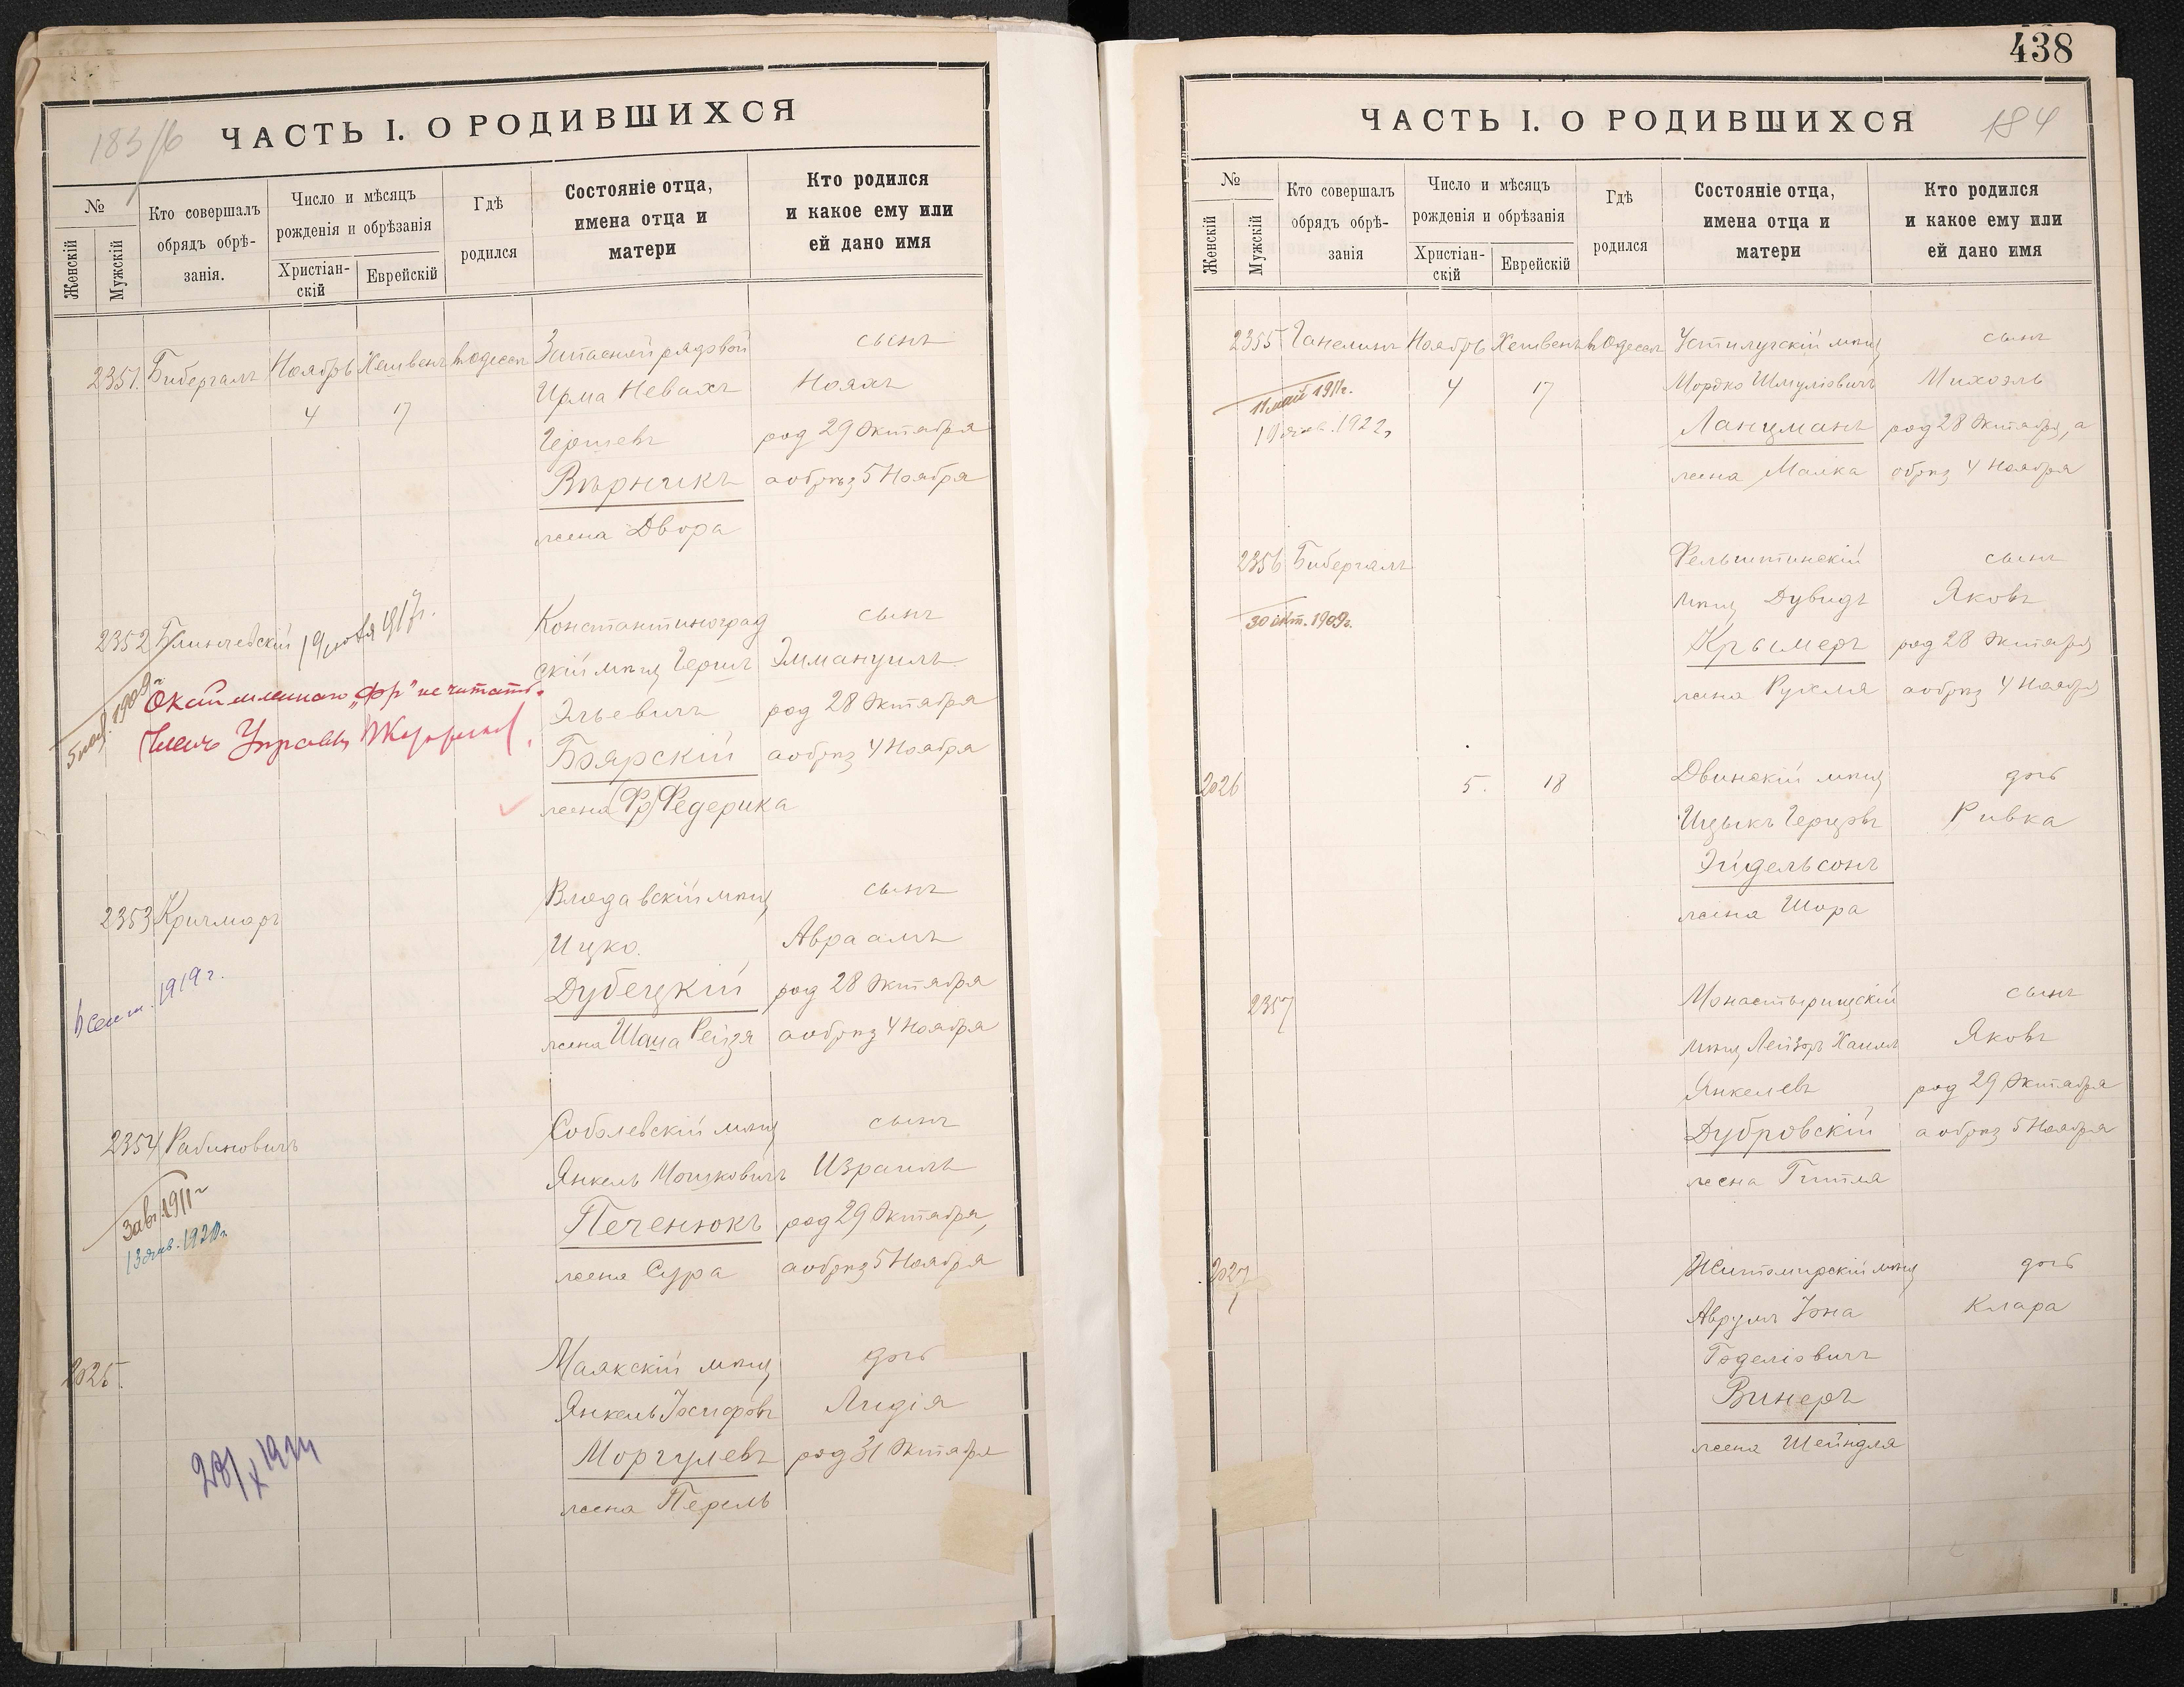 183/б
ЧАСТЬ I. О РОДИВШИХСЯ
№
Женскій
Мужскій
Кто совершалъ
обрядъ обрѣ-
занія.
Число и мѣсяцъ
рожденія и обрѣзанія
Христіан-
скій
Еврейскій
Гдѣ
родился
Состояніе отца,
имена отца и
матери
Кто родился
и какое ему или
ей дано имя
2351. Бибергалъ Ноябрь Хешвенъ въ Одессѣ Запасной рядовой сынъ
4 17 Невахъ Ноахъ
Гершевъ род 29 Октября
Вѣрникъ а обрѣз 5 Ноября
жена Двора
2352 19 1917г. Константиноград сынъ
скій мѣщ Герша Эммануилъ
5 1909г
Эльевичъ род 28 Октября
"Фр" не читать.
Членъ Управы
Боярскій а обрѣз 4 Ноября
жена (Фр) Федерика
2353 Кричмаръ Влодавскій мѣщ сынъ
Ицко. Авраамъ
6 сент. 1919г.
Дубецкій род 28 Октября
жена Рейзя а обрѣз 4 Ноября
2354 Рабиновичъ Соболевскій мѣщ сынъ
Янкель Мошковичъ Израиль
3 авг. 1911г
13 янв. 1920г.
Печенюкъ род 29 Октября,
жена Сура а обрѣз 5 Ноября
2025. Маякскій мѣщ дочь
Янкель Іосифовъ Лидія
Моргулевъ род 31 Октября
жена Перель
438
184
ЧАСТЬ I. О РОДИВШИХСЯ
№
Женскій
Мужскій
Кто совершалъ
обрядъ обрѣ-
занія
Число и мѣсяцъ
рожденія и обрѣзанія
Христіан-
скій
Еврейскій
Гдѣ
родился
Состояніе отца,
имена отца и
матери
Кто родился
и какое ему или
ей дано имя
2355 Ганелинъ Ноябрь Хешвенъ въ Одессѣ Устилугскій мѣщ сынъ
11 май 1911г. 4 17 Мордко Шмуліовичъ Михоэль
10 янв. 1922г
Ланцманъ род 28 Октября, а
жена Малка обрѣз 4 Ноября
2356 Бибергалъ Фельштинскій сынъ
мѣщ Дувидъ Яковъ
30 окт. 1909г.
Крымеръ род 28 Октября
жена Рухля а обрѣз 4 Ноября
2026 5. 18 Двинскій мѣщ дочь
Ицыкъ Герцовъ Ривка
Эйдельсонъ
жена Шора
2357 Монастырищскій сынъ
мѣщ Лейзоръ Хаимъ Яковъ
Янкелевъ род 29 Октября
Дубровскій а обрѣз 5 Ноября
жена Гитля
2027 Житомирскій мѣщ дочь
Аврумъ Іона Клара
Годеліовичъ
Винеръ
жена Шейндля